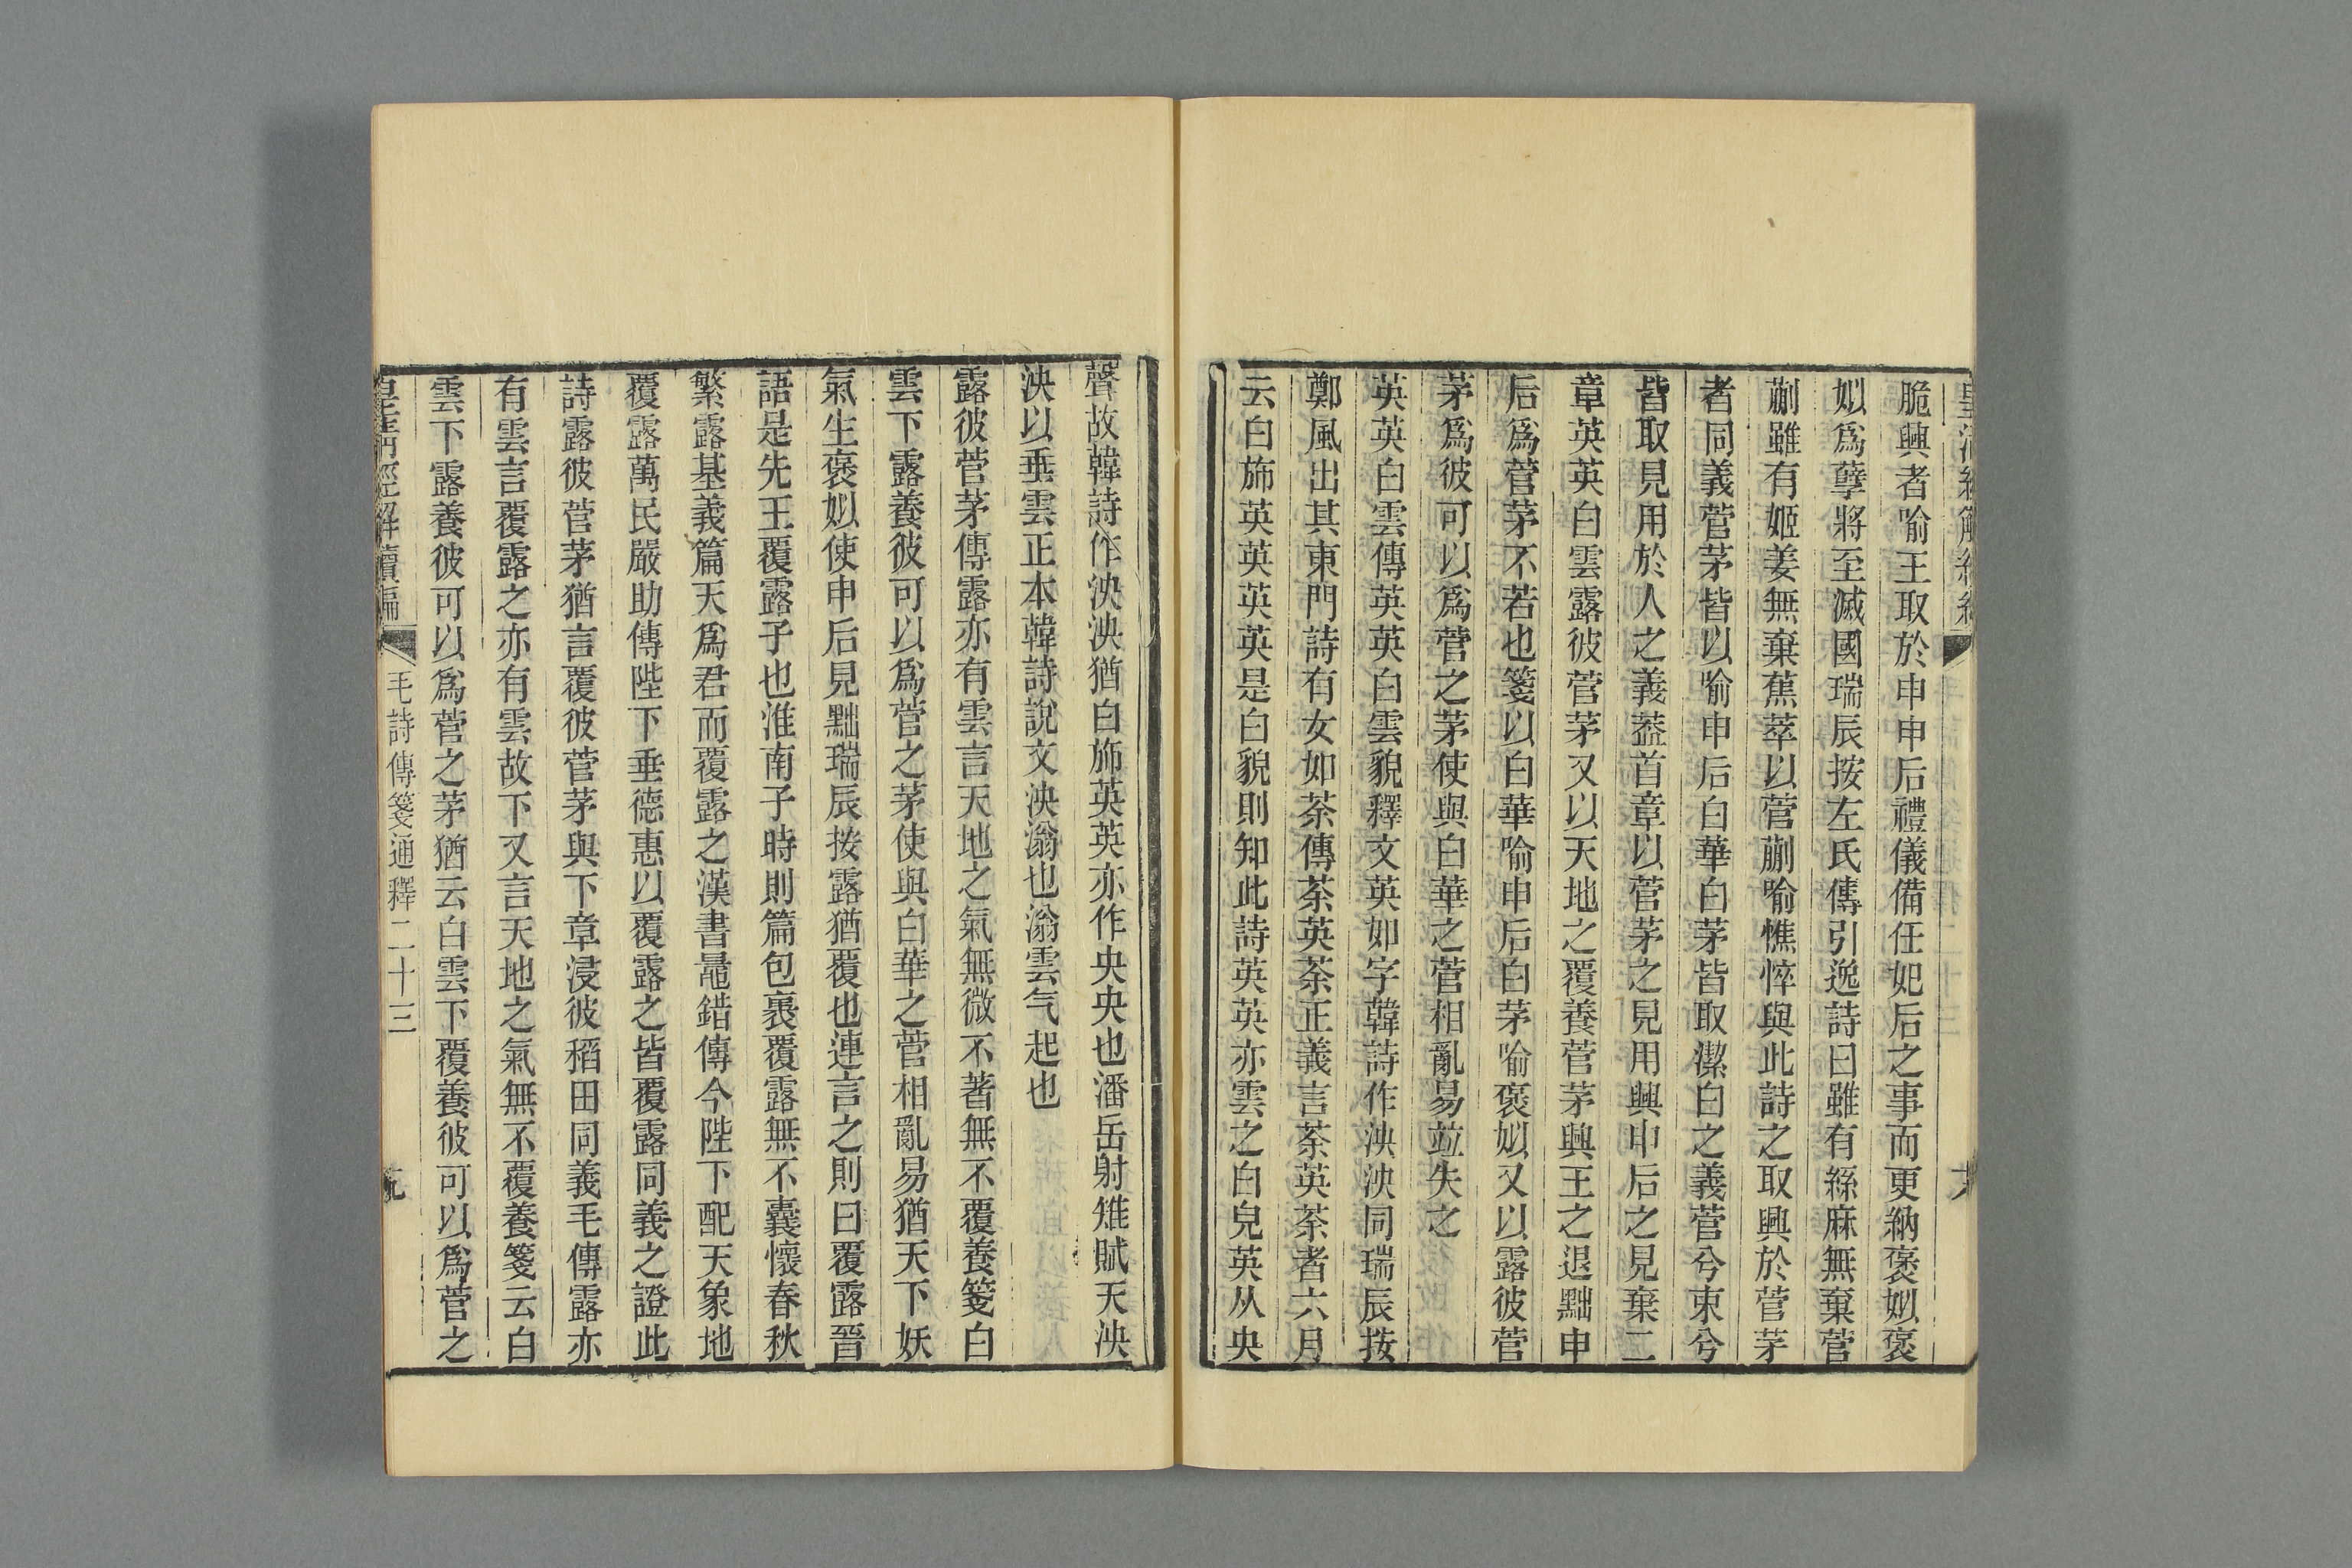 脆興者喻王取於申申后禮儀備任妃后之事而更納褒姒褒
姒爲孽將至滅國瑞辰按左氏傳引逸詩曰雖有絲麻無棄菅
蒯雖有姬姜無棄蕉萃以菅蒯喻憔悴與此詩之取興於菅茅
者同義菅茅皆以喻申后白華白茅皆取潔白之義菅兮束兮
皆取見用於人之義葢首章以菅茅之見用興申后之見棄二
章英英白雲露彼菅茅又以天地之覆養菅茅興王之退黜申
后爲菅茅不若也箋以白華喻申后白茅喻褒姒又以露彼菅
茅爲彼可以爲菅之茅使與白華之菅相亂易竝失之
英英白雲傳英英白雲貌釋文英如字韓詩作泱泱同瑞辰按
鄭風出其東門詩有女如荼傳荼英荼正義言荼英荼者六月
云白斾英英英英是白貌則知此詩英英亦雲之白皃英从央
聲故韓詩作泱泱猶白斾英英亦作央央也潘岳射雉賦天泱
泱以垂雲正本韓詩說文泱滃也滃雲气起也
露彼菅茅傳露亦有雲言天地之氣無微不著無不覆養箋白
雲下露養彼可以爲菅之茅使與白華之菅相亂易猶天下妖
氣生褒姒使申后見黜瑞辰按露猶覆也連言之則曰覆露晉
語是先王覆露子也淮南子時則篇包裹覆露無不囊懷春秋
繁露基義篇天爲君而覆露之漢書鼂錯傳今陛下配天象地
覆露萬民嚴助傳陛下垂德惠以覆露之皆覆露同義之證此
詩露彼菅茅猶言覆彼菅茅與下章浸彼稻田同義毛傳露亦
有雲言覆露之亦有雲故下又言天地之氣無不覆養箋云白
雲下露養彼可以爲菅之茅猶云白雲下覆養彼可以爲菅之
皇清經解續編 毛詩傳箋通釋二十三